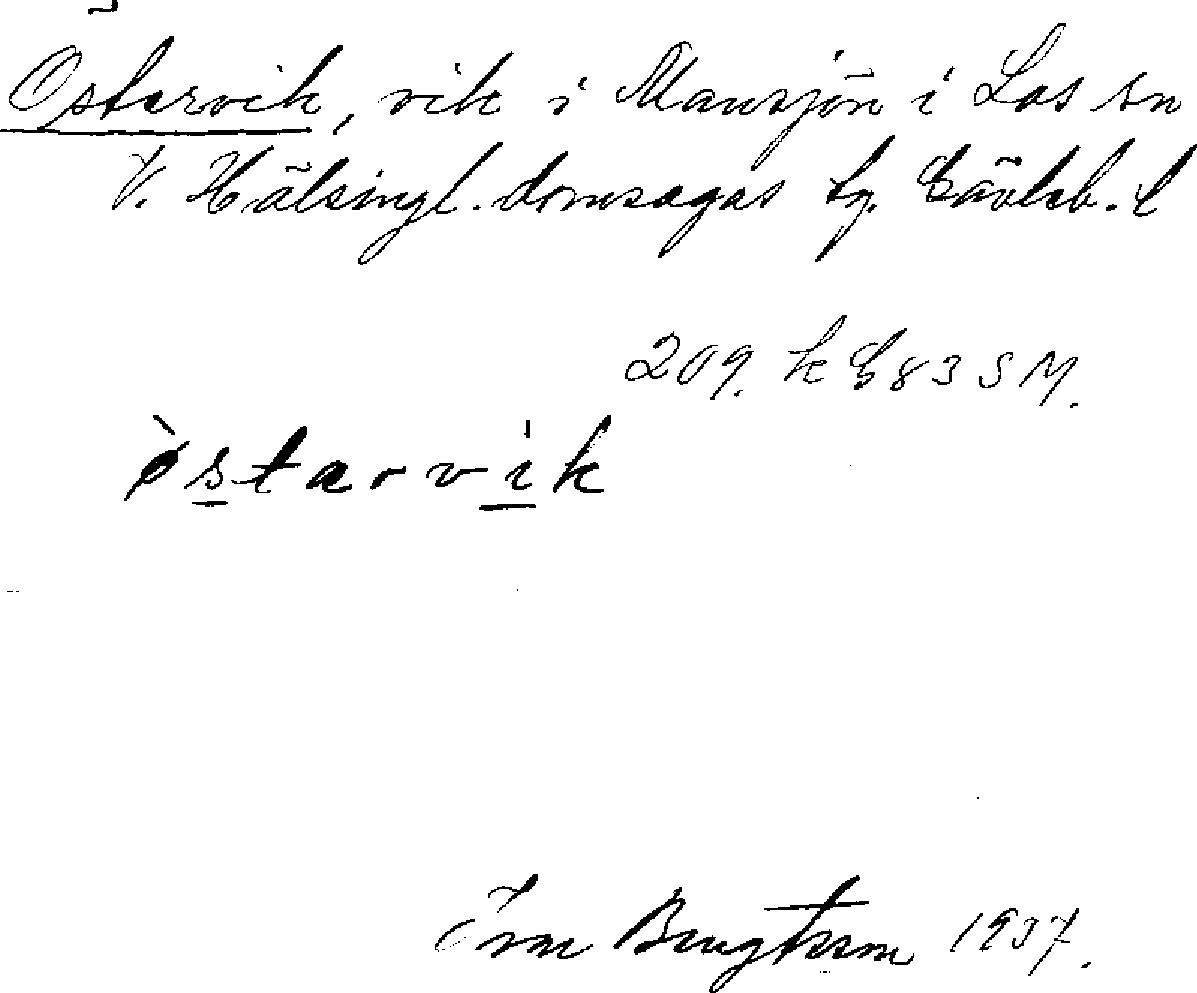 Östervik, vik i Mansjön i Los sn
V. Hälsingl. domsagas tg. Gävleb. l
209. k G 83 S M.
ø̀starvik
Ivar Bengtsson 1937.